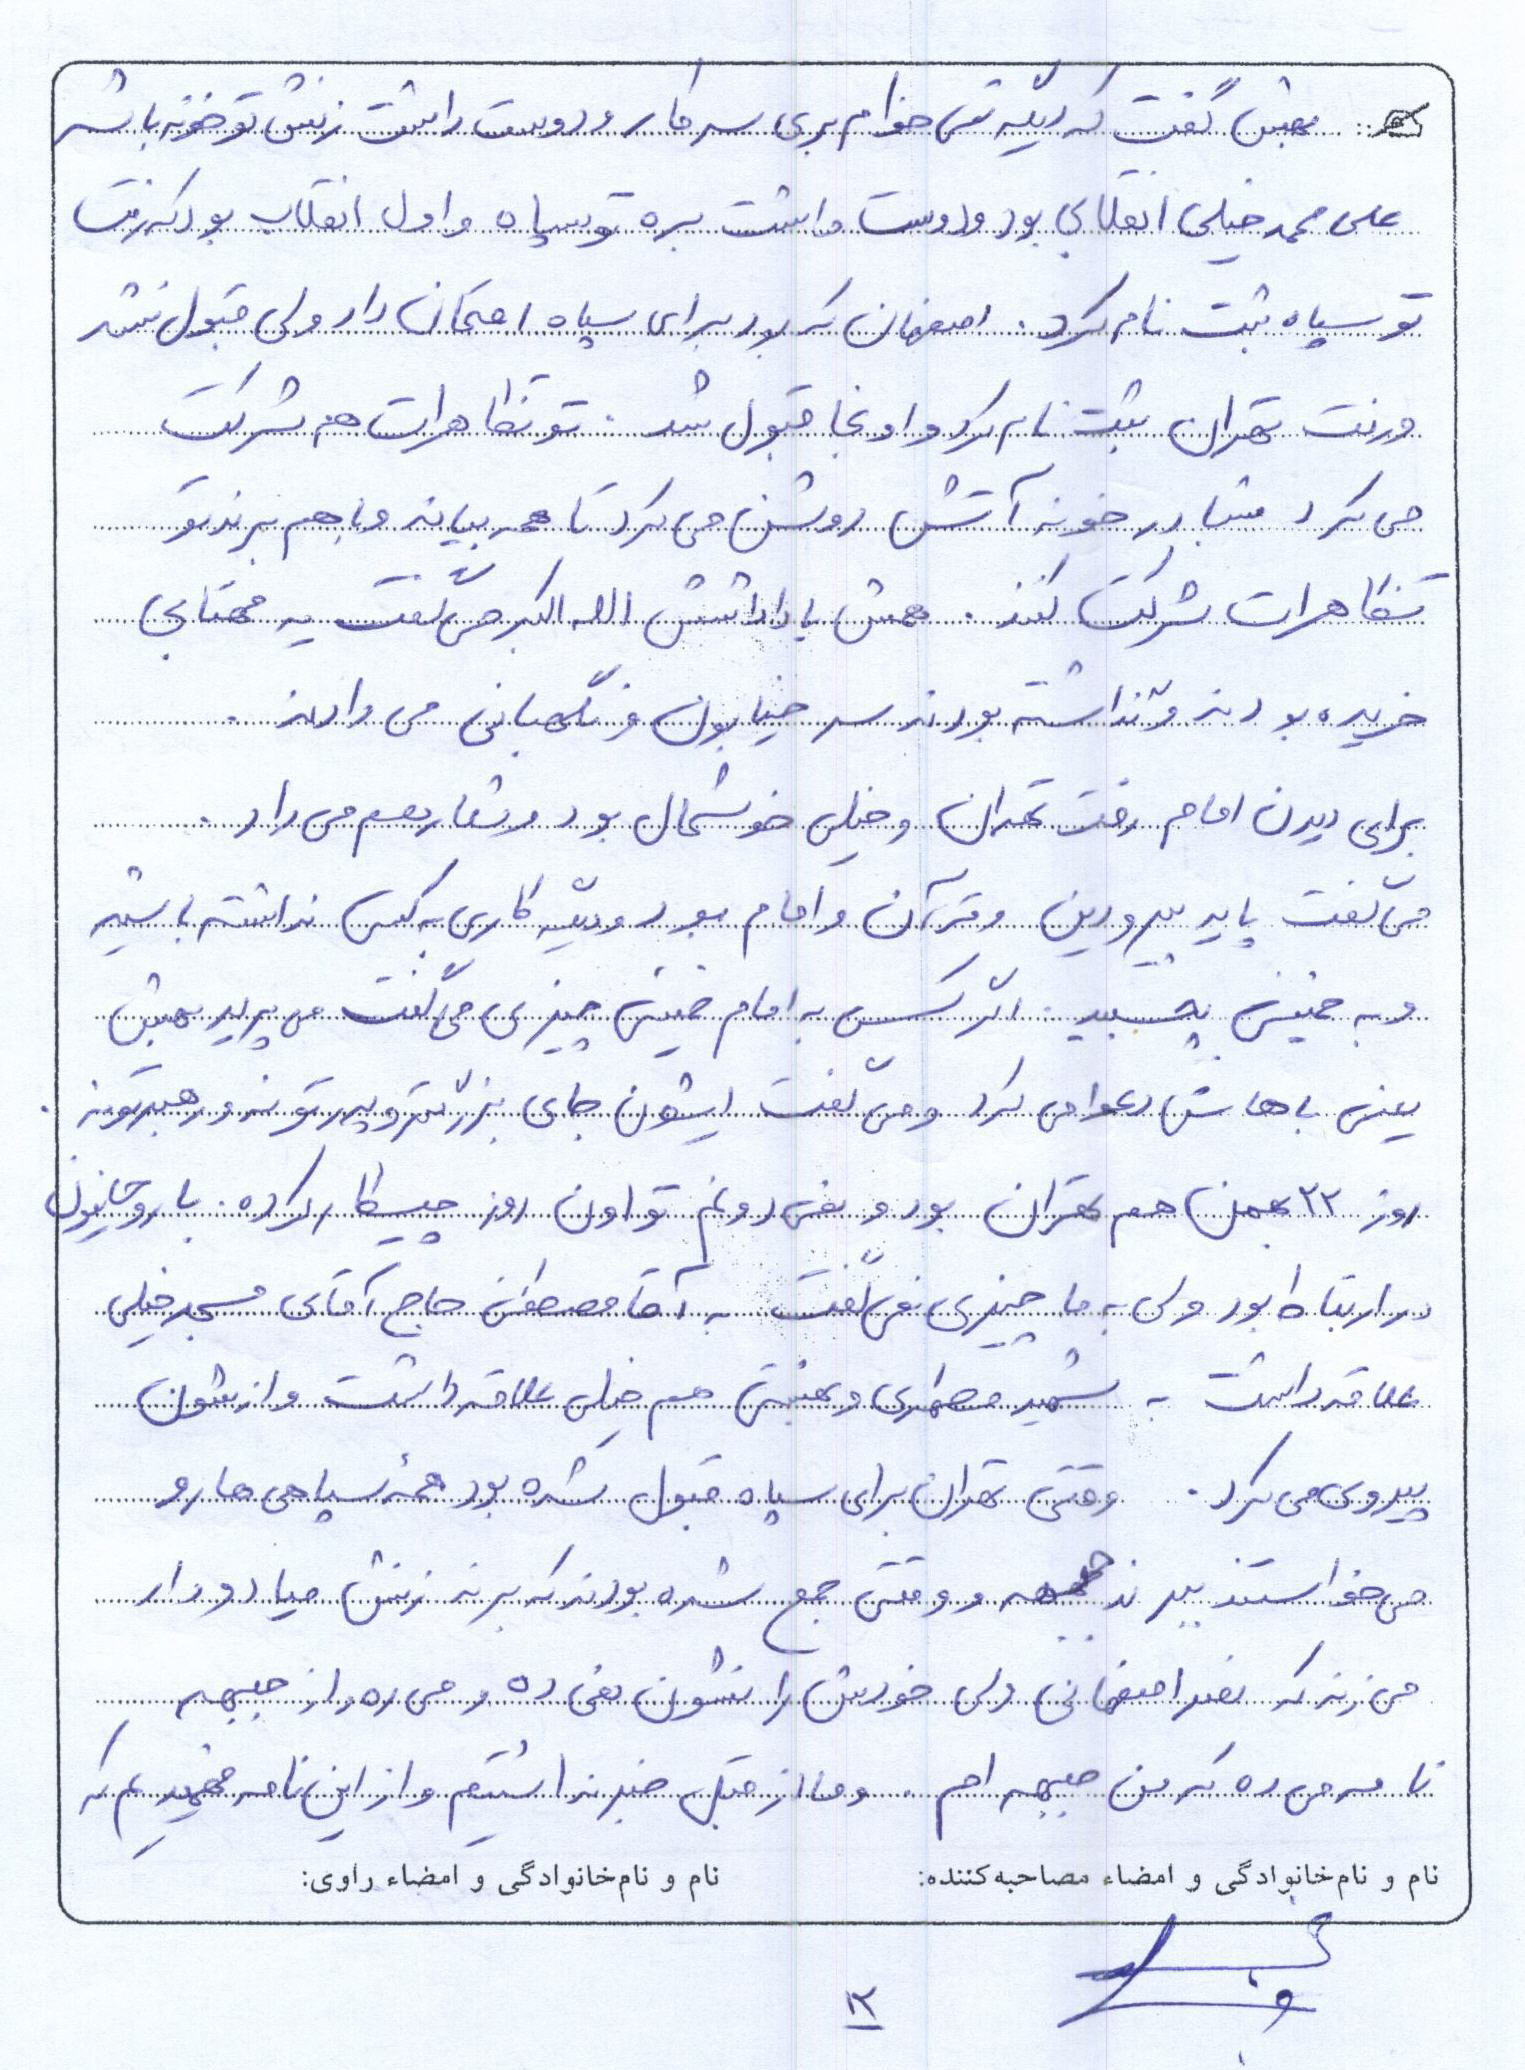 بهش گفت که دیگه نمی خوام بری سر کار و دوست داشت زنش تو خونه باشه
علی محمد خیلی انقلابی بود و دوست داشت بره تو سپاه و اول انقلاب بود که رفت
تو سپاه ثبت نام کرد. اصفهان که بود برای سپاه امتحان داد ولی قبول نشد
و رفت تهران ثبت نام کرد و اونجا قبول شد. تو تظاهرات هم شرکت
می کرد شبا در خونه آتش روشن می کرد تا همه بیاند و با هم برند تو
تظاهرات شرکت کنند. همش با داداشش الله اکبر می گفت یه مهتابی
خریده بودند و گذاشته بودند سر خیابون و نگهبانی می دادند.
برای دیدن امام رفت تهران و خیلی خوشحال بود و شعار هم می داد.
می گفت باید پیرو دین و قرآن و امام بود و دیگه کاری به کسی نداشته باشید
و به خمینی بچسبید. اگر کسی به امام خمینی چیزی می گفت می پرید بهش
یعنی باهاش دعوا می کرد و می گفت ایشون جای بزرگتر و پدرتونه و رهبرتونه.
روز ۲۲ بهمن هم تهران بود و نمی دونم تو اون روز چیکار کرده. با روحانیون
در ارتباط بود ولی به ما چیزی نمی گفت به آقا مصطفی حاج آقای مسجد خیلی
علاقه داشت به شهید مطهری و بهشتی هم خیلی علاقه داشت و ازشون
پیروی می کرد. وقتی تهران برای سپاه قبول شده بود همهٔ سپاهی ها رو
می خواستند ببرند جبهه و وقتی جمع شده بودند که برند زنش میاد و زار
می زنه که نفر اصفهانی ولی خودش را نشون نمی ده و می ره و از جبهه
نامه می ده که من جبهه ام. و ما از قبل خبر نداشتیم و از این نامه فهمیدیم که
نام و نام‌خانوادگی و امضاء مصاحبه‌کننده: نام و نام‌خانوادگی و امضاء راوی: